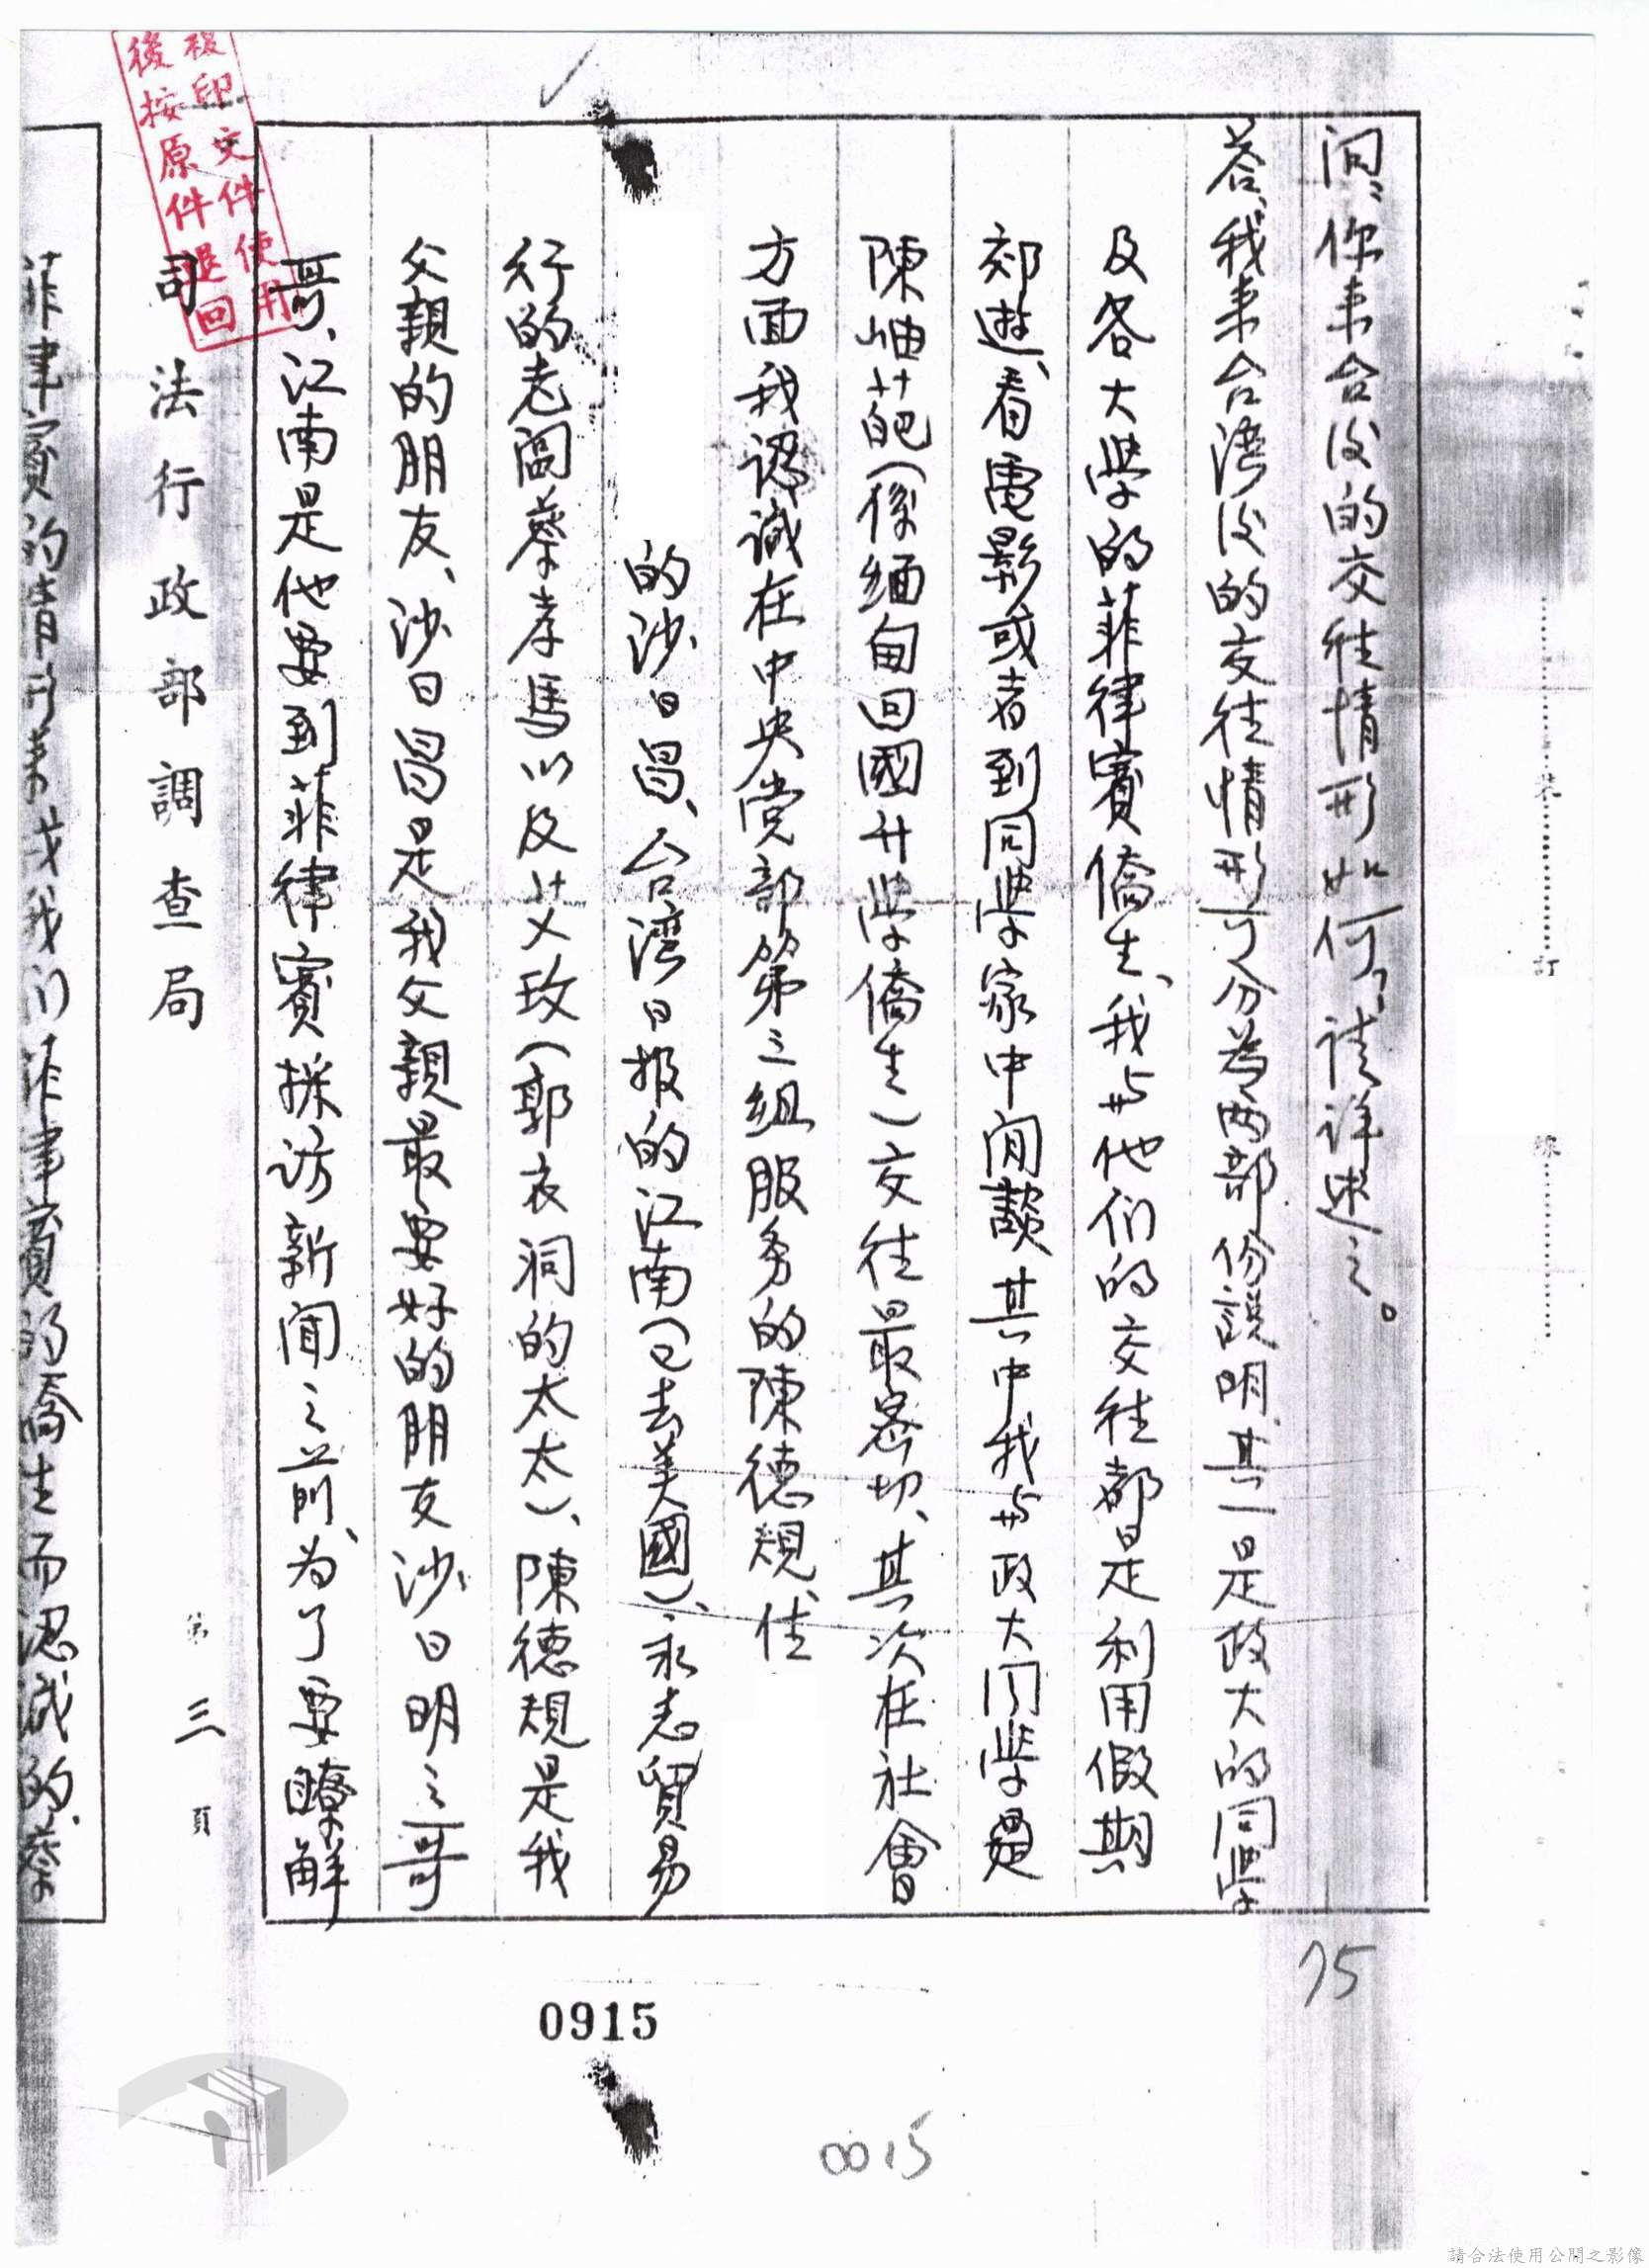 問、你来台後的交往情形如何？請詳述之。
答、我来台湾後的交往情形可分為两部份説明、其一是政大的同学
及各大学的菲律賓僑生、我与他们的交往都是利用假期
郊遊、看電影或者到同学家中閒談其中我与政大同学
陳岫葩(係緬甸回國升学僑生)交往最密切、其次在社會
方面我認識在中央党部第三組服务的陳德規、住
的沙日昌、台湾日报的江南(已去美國)、永志貿易
行的老闆蔡孝馬以及艾玫(郭衣洞的太太)、陳德規是我
父親的朋友、沙日昌是我父親最要好的朋友沙日明之哥
哥、江南是他要到菲律賓採訪新聞之前、为了要瞭解
司法行政部調查局
第三頁
菲律賓的情形我们菲律賓的僑生而認識的、蔡
複印文件使用
後按原件退回
訂
線
75
0915
0015
請合法使用公開之影像